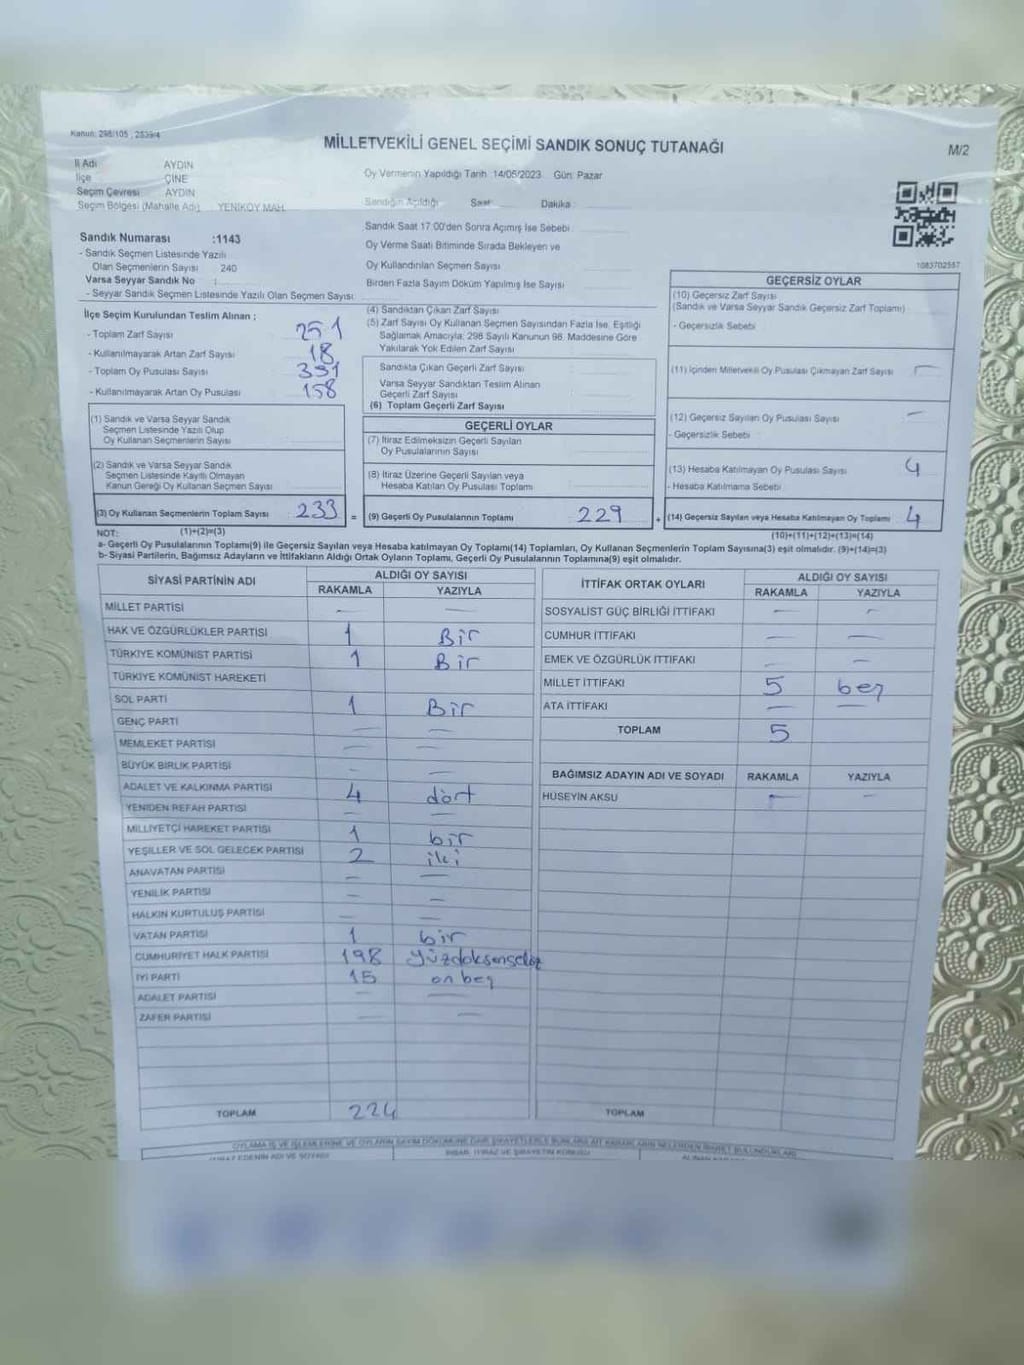 Kanun: 298/105 , 2839/4
MİLLETVEKİLİ GENEL SEÇİMİ SANDIK SONUÇ TUTANAĞI
M/2
İl Adı AYDIN
İlçe ÇİNE
Seçim Çevresi AYDIN
Seçim Bölgesi (Mahalle Adı) YENİKÖY MAH.
Oy Vermenin Yapıldığı Tarih 14/05/2023 Gün: Pazar
Sandığın Açıldığı Saat Dakika
Sandık Saat 17:00'den Sonra Açılmış İse Sebebi
Oy Verme Saati Bitiminde Sırada Bekleyen ve
Oy Kullandırılan Seçmen Sayısı
Birden Fazla Sayım Döküm Yapılmış İse Sayısı
1083702557
Sandık Numarası :1143
- Sandık Seçmen Listesinde Yazılı
Olan Seçmenlerin Sayısı 240
Varsa Seyyar Sandık No :
- Seyyar Sandık Seçmen Listesinde Yazılı Olan Seçmen Sayısı:
İlçe Seçim Kurulundan Teslim Alınan ;
- Toplam Zarf Sayısı 251
- Kullanılmayarak Artan Zarf Sayısı 18
- Toplam Oy Pusulası Sayısı
- Kullanılmayarak Artan Oy Pusulası 158
(1) Sandık ve Varsa Seyyar Sandık
Seçmen Listesinde Yazılı Olup
Oy Kullanan Seçmenlerin Sayısı
(2) Sandık ve Varsa Seyyar Sandık
Seçmen Listesinde Kayıtlı Olmayan
Kanun Gereği Oy Kullanan Seçmen Sayısı
(3) Oy Kullanan Seçmenlerin Toplam Sayısı 233 =
(1)+(2)=(3)
(4) Sandıktan Çıkan Zarf Sayısı
(5) Zarf Sayısı Oy Kullanan Seçmen Sayısından Fazla İse, Eşitliği
Sağlamak Amacıyla, 298 Sayılı Kanunun 98. Maddesine Göre
Yakılarak Yok Edilen Zarf Sayısı
Sandıkta Çıkan Geçerli Zarf Sayısı
Varsa Seyyar Sandıktan Teslim Alınan
Geçerli Zarf Sayısı
(6) Toplam Geçerli Zarf Sayısı
GEÇERLİ OYLAR
(7) İtiraz Edilmeksizin Geçerli Sayılan
Oy Pusulalarının Sayısı
(8) İtiraz Üzerine Geçerli Sayılan veya
Hesaba Katılan Oy Pusulası Toplamı
(9) Geçerli Oy Pusulalarının Toplamı 229 +
GEÇERSİZ OYLAR
(10) Geçersiz Zarf Sayısı
(Sandık ve Varsa Seyyar Sandık Geçersiz Zarf Toplamı)
- Geçersizlik Sebebi
(11) İçinden Milletvekili Oy Pusulası Çıkmayan Zarf Sayısı —
(12) Geçersiz Sayılan Oy Pusulası Sayısı —
- Geçersizlik Sebebi
(13) Hesaba Katılmayan Oy Pusulası Sayısı 4
- Hesaba Katılmama Sebebi
(14) Geçersiz Sayılan veya Hesaba Katılmayan Oy Toplamı 4
(10)+(11)+(12)+(13)=(14)
NOT:
a- Geçerli Oy Pusulalarının Toplamı(9) ile Geçersiz Sayılan veya Hesaba katılmayan Oy Toplamı(14) Toplamları, Oy Kullanan Seçmenlerin Toplam Sayısına(3) eşit olmalıdır. (9)+(14)=(3)
b- Siyasi Partilerin, Bağımsız Adayların ve İttifakların Aldığı Ortak Oyların Toplamı, Geçerli Oy Pusulalarının Toplamına(9) eşit olmalıdır.
SİYASİ PARTİNİN ADI ALDIĞI OY SAYISI
RAKAMLA YAZIYLA
MİLLET PARTİSİ — —
HAK VE ÖZGÜRLÜKLER PARTİSİ 1 Bir
TÜRKİYE KOMÜNİST PARTİSİ 1 Bir
TÜRKİYE KOMÜNİST HAREKETİ
SOL PARTİ 1 Bir
GENÇ PARTİ — —
MEMLEKET PARTİSİ — —
BÜYÜK BİRLİK PARTİSİ — —
ADALET VE KALKINMA PARTİSİ 4 dört
YENİDEN REFAH PARTİSİ — —
MİLLİYETÇİ HAREKET PARTİSİ 1 bir
YEŞİLLER VE SOL GELECEK PARTİSİ 2 iki
ANAVATAN PARTİSİ — —
YENİLİK PARTİSİ — —
HALKIN KURTULUŞ PARTİSİ — —
VATAN PARTİSİ 1 bir
CUMHURİYET HALK PARTİSİ 198 yüzdoksansekiz
İYİ PARTİ 15 on beş
ADALET PARTİSİ — —
ZAFER PARTİSİ — —
TOPLAM 224
İTTİFAK ORTAK OYLARI ALDIĞI OY SAYISI
RAKAMLA YAZIYLA
SOSYALİST GÜÇ BİRLİĞİ İTTİFAKI — —
CUMHUR İTTİFAKI — —
EMEK VE ÖZGÜRLÜK İTTİFAKI — —
MİLLET İTTİFAKI 5 beş
ATA İTTİFAKI — —
TOPLAM 5
BAĞIMSIZ ADAYIN ADI VE SOYADI RAKAMLA YAZIYLA
HÜSEYİN AKSU — —
TOPLAM